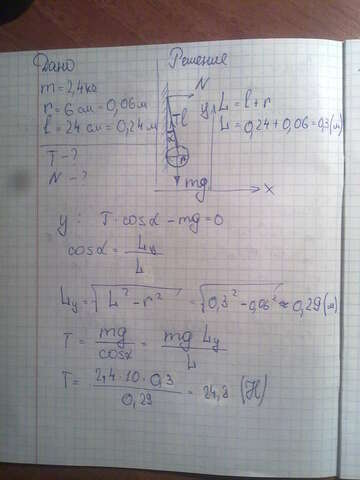 Дано
m = 2,4 кг
r = 6 см = 0,06 м
l = 24 см = 0,24 м
T - ?
N - ?
Решение
N
y
T
l
α
mg
x
L = l + r
L = 0,24 + 0,06 = 0,3 (м)
y: T · cosα - mg = 0
cosα = Ly / L
Ly = √(L² - r²) = √(0,3² - 0,06²) ≈ 0,29 (м)
T = mg / cosα = mg Ly / L
T = 2,4 · 10 · 0,3 / 0,29 = 24,8 (Н)